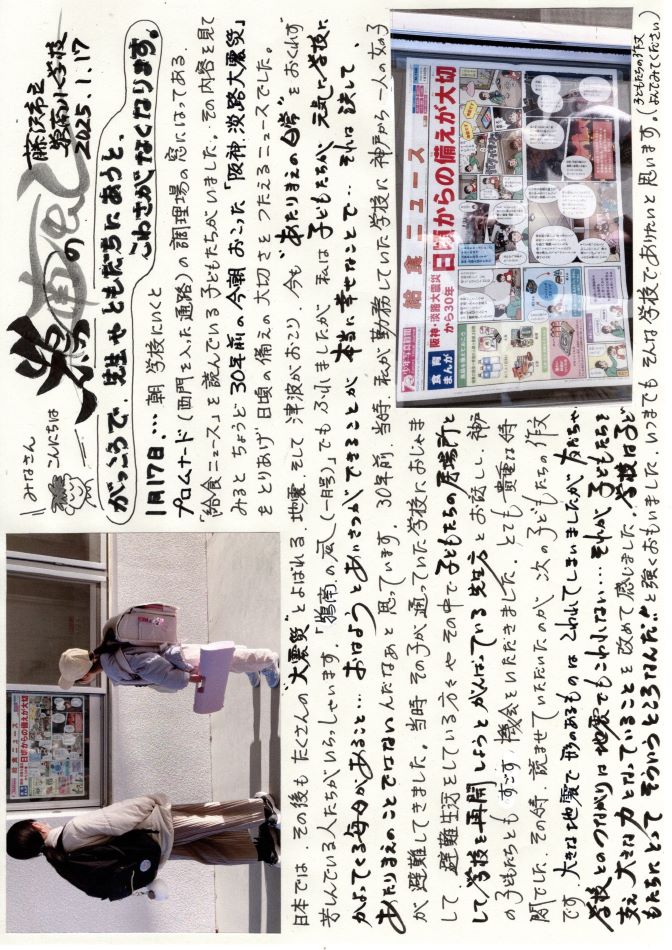 みなさん
こんにちは
鵠南の
藤沢市立
鵠南小学校
2025.1.17
がっこうで、先生やともだちにあうと、
こわさがなくなります。
1月17日…朝 学校にいくと
プロムナード(西門を入った通路)の調理場の窓にはってある
「給食ニュース」を読んでいる子どもたちがいました。その内容を見て
みると ちょうど30年前の今朝 おこった「阪神・淡路大震災」
をとりあげ 日頃の備えの大切さをつたえるニュースでした。
日本では、その後も たくさんの"大震災"とよばれる 地震、そして 津波がおこり、今も あたりまえの"日常"をおくれず
苦しんでいる人たちがいらっしゃいます。「鵠南の風(一月号)」でもふれましたが 私は 子どもたちが 元気に学校に
かよってくる毎日があること… おはようとあいさつができることが 本当に幸せなことで… それは 決して、
あたりまえのことではないんだなあと 思っています。30年前、当時 私が勤務していた学校に 神戸から 一人の女の子
が避難してきました。当時 その子が通っていた学校におじゃま
して、避難生活をしている方々や その中で 子どもたちの居場所と
して 学校を再開しようとがんばっている先生方とお話しし、神戸
の子どもたちとも すごす機会をいただきました。とても貴重な時
間でした。その時 読ませていただいたのが 次の子どもたちの作文
です。大きな地震で 形のあるものは こわれてしまいましたが 友だちや
学校とのつながりは 地震でもこわれない… それが 子どもたちを
支え 大きな力となっていることを 改めて感じました。学校は子ど
もたちにとって そういうところなんだ!!と強くおもいました。いつまでも そんな学校でありたいと思います。(子どもたちの作文
よんでみてください)
給食ニュース
食育
まんが
阪神・淡路大震災
から30年
日頃からの備えが大切
給食ニュース
日頃からの備えが大切